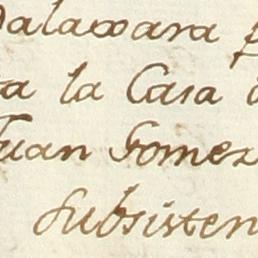 dalaxara p
ta la Casa d
Juan Gomez
Subsisten